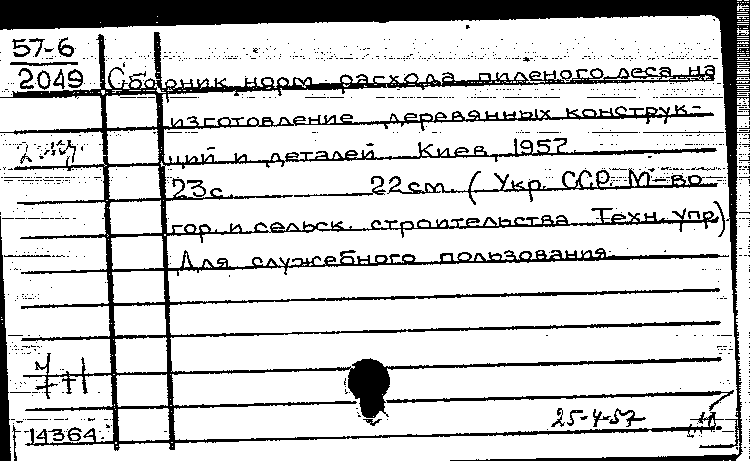 57-6
2049 Сборник норм расхода пиленого леса на
изготовление деревянных конструк-
ций и деталей. Киев, 1957.
23с. 22см. (Укр. ССР. М-во
гор. и сельск. строительства Техн. упр)
Для служебного пользования.
14364.
25-4-57